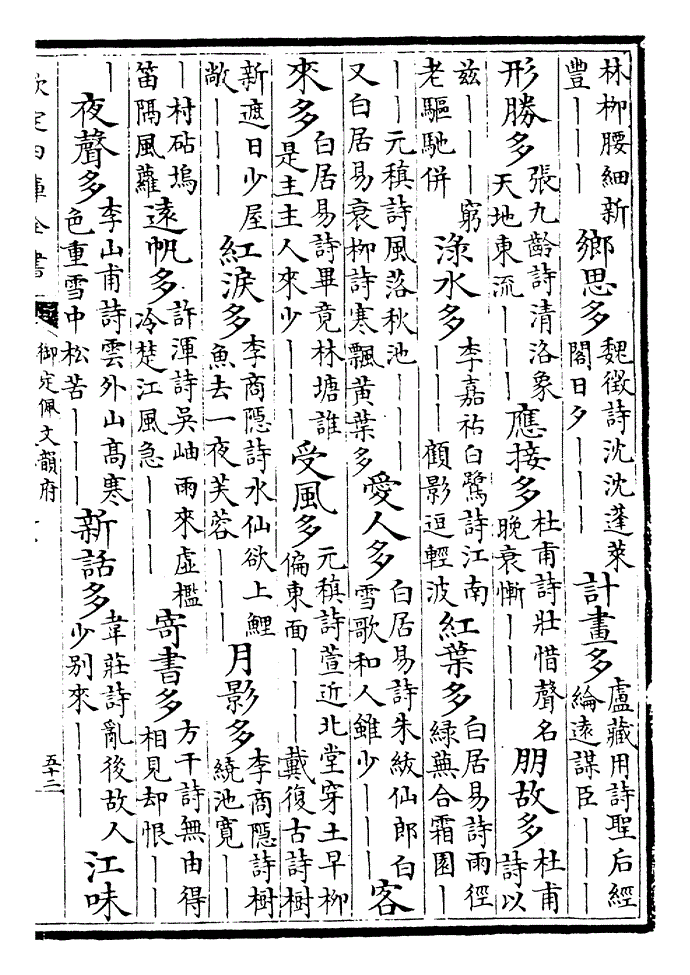 林柳腰細新豐｜｜｜ 鄉思多 魏徵詩沈沈蓬萊閣日夕｜｜｜ 計畫多 盧藏用詩聖后經綸遠謀臣｜｜｜
形勝多 張九齡詩清洛象天地東流｜｜｜ 應接多 杜甫詩壯惜聲名晚衰慚｜｜｜ 朋故多 杜甫詩以
茲｜｜｜窮老驅馳併 淥水多 李嘉祐白鷺詩江南｜｜｜顧影逗輕波 紅葉多 白居易詩雨徑綠蕪合霜園｜
｜｜元稹詩風落秋池｜｜｜又白居易衰柳詩寒飄黃葉多 愛人多 白居易詩朱紱仙郎白雪歌和人雖少｜｜｜ 客
來多 白居易詩畢竟林塘誰是主主人來少｜｜｜ 受風多 元稹詩萱近北堂穿土早柳偏東面｜｜｜戴復古詩樹
新遮日少屋敞｜｜｜ 紅淚多 李商隱詩水仙欲上鯉魚去一夜芙蓉｜｜｜ 月影多 李商隱詩樹繞池寬｜｜｜
｜村砧塢笛隔風蘿 遠帆多 許渾詩吳岫雨來虛檻冷楚江風急｜｜｜ 寄書多 方干詩無由得相見却恨｜｜
｜ 夜聲多 李山甫詩雲外山高寒色重雪中松苦｜｜｜ 新話多 韋莊詩亂後故人少別來｜｜｜ 江味
欽定四庫全書 御定佩文韻府 五十二